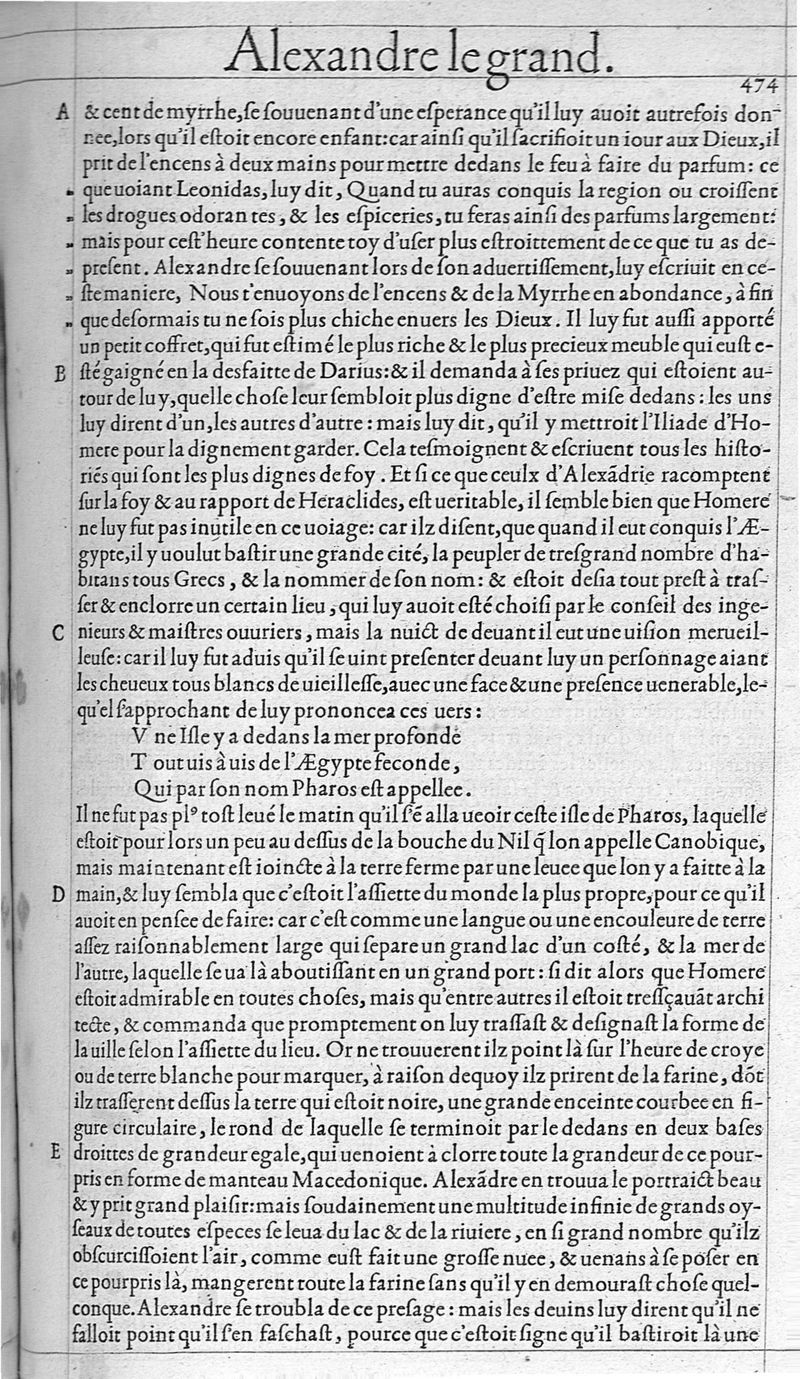 Alexandre le grand.
474
A & cent de myrrhe, ſe ſouuenant d'une eſperance qu'il luy auoit autrefois don-
nee, lors qu'il eſtoit encore enfant: car ainſi qu'il ſacrifioit un iour aux Dieux, il
prit de l'encens à deux mains pour mettre dedans le feu à faire du parfum: ce
" que uoiant Leonidas, luy dit, Quand tu auras conquis la region ou croiſſent
" les drogues odorantes, & les eſpiceries, tu feras ainſi des parfums largement:
" mais pour ceſt'heure contente toy d'uſer plus eſtroittement de ce que tu as de-
" preſent. Alexandre ſe ſouuenant lors de ſon aduertiſſement, luy eſcriuit en ce-
" ſte maniere, Nous t'enuoyons de l'encens & de la Myrrhe en abondance, à fin
" que deſormais tu ne ſois plus chiche enuers les Dieux. Il luy fut auſſi apporté
un petit coffret, qui fut eſtimé le plus riche & le plus precieux meuble qui euſt e-
B ſté gaigné en la desfaitte de Darius: & il demanda à ſes priuez qui eſtoient au-
tour de luy, quelle choſe leur ſembloit plus digne d'eſtre miſe dedans: les uns
luy dirent d'un, les autres d'autre: mais luy dit, qu'il y mettroit l'Iliade d'Ho-
mere pour la dignement garder. Cela teſmoignent & eſcriuent tous les hiſto-
riēs qui ſont les plus dignes de foy. Et ſi ce que ceulx d'Alexādrie racomptent
ſur la foy & au rapport de Heraclides, eſt ueritable, il ſemble bien que Homere
ne luy fut pas inutile en ce uoiage: car ilz diſent, que quand il eut conquis l'Æ-
gypte, il y uoulut baſtir une grande cité, la peupler de treſgrand nombre d'ha-
bitans tous Grecs, & la nommer de ſon nom: & eſtoit deſia tout preſt à traſ-
ſer & enclorre un certain lieu, qui luy auoit eſté choiſi par le conſeil des inge-
C nieurs & maiſtres ouuriers, mais la nuict de deuant il eut une uiſion merueil-
leuſe: car il luy fut aduis qu'il ſe uint preſenter deuant luy un perſonnage aiant
les cheueux tous blancs de uieilleſſe, auec une face & une preſence uenerable, le-
qu'el ſ'approchant de luy prononcea ces uers:
Vne Iſle y a dedans la mer profonde
Tout uis à uis de l'Ægypte feconde,
Qui par ſon nom Pharos eſt appellee.
Il ne fut pas plꝰ toſt leué le matin qu'il ſ'ē alla ueoir ceſte iſle de Pharos, laquelle
eſtoit pour lors un peu au deſſus de la bouche du Nil q̃ lon appelle Canobique,
mais maintenant eſt ioincte à la terre ferme par une leuee que lon y a faitte à la
D main, & luy ſembla que c'eſtoit l'aſſiette du monde la plus propre, pour ce qu'il
auoit en penſee de faire: car c'eſt comme une langue ou une encouleure de terre
aſſez raiſonnablement large qui ſepare un grand lac d'un coſté, & la mer de
l'autre, laquelle ſe ua là aboutiſſant en un grand port: ſi dit alors que Homere
eſtoit admirable en toutes choſes, mais qu'entre autres il eſtoit treſſçauāt archi
tecte, & commanda que promptement on luy traſſaſt & deſignaſt la forme de
la uille ſelon l'aſſiette du lieu. Or ne trouuerent ilz point là ſur l'heure de croye
ou de terre blanche pour marquer, à raiſon dequoy ilz prirent de la farine, dōt
ilz traſſerent deſſus la terre qui eſtoit noire, une grande enceinte courbee en fi-
gure circulaire, le rond de laquelle ſe terminoit par le dedans en deux baſes
E droittes de grandeur egale, qui uenoient à clorre toute la grandeur de ce pour-
pris en forme de manteau Macedonique. Alexādre en trouua le portraict beau
& y prit grand plaiſir: mais ſoudainement une multitude infinie de grands oy-
ſeaux de toutes eſpeces ſe leua du lac & de la riuiere, en ſi grand nombre qu'ilz
obſcurciſſoient l'air, comme euſt fait une groſſe nuee, & uenans à ſe poſer en
ce pourpris là, mangerent toute la farine ſans qu'il y en demouraſt choſe quel-
conque. Alexandre ſe troubla de ce preſage: mais les deuins luy dirent qu'il ne
falloit point qu'il ſ'en faſchaſt, pource que c'eſtoit ſigne qu'il baſtiroit là une